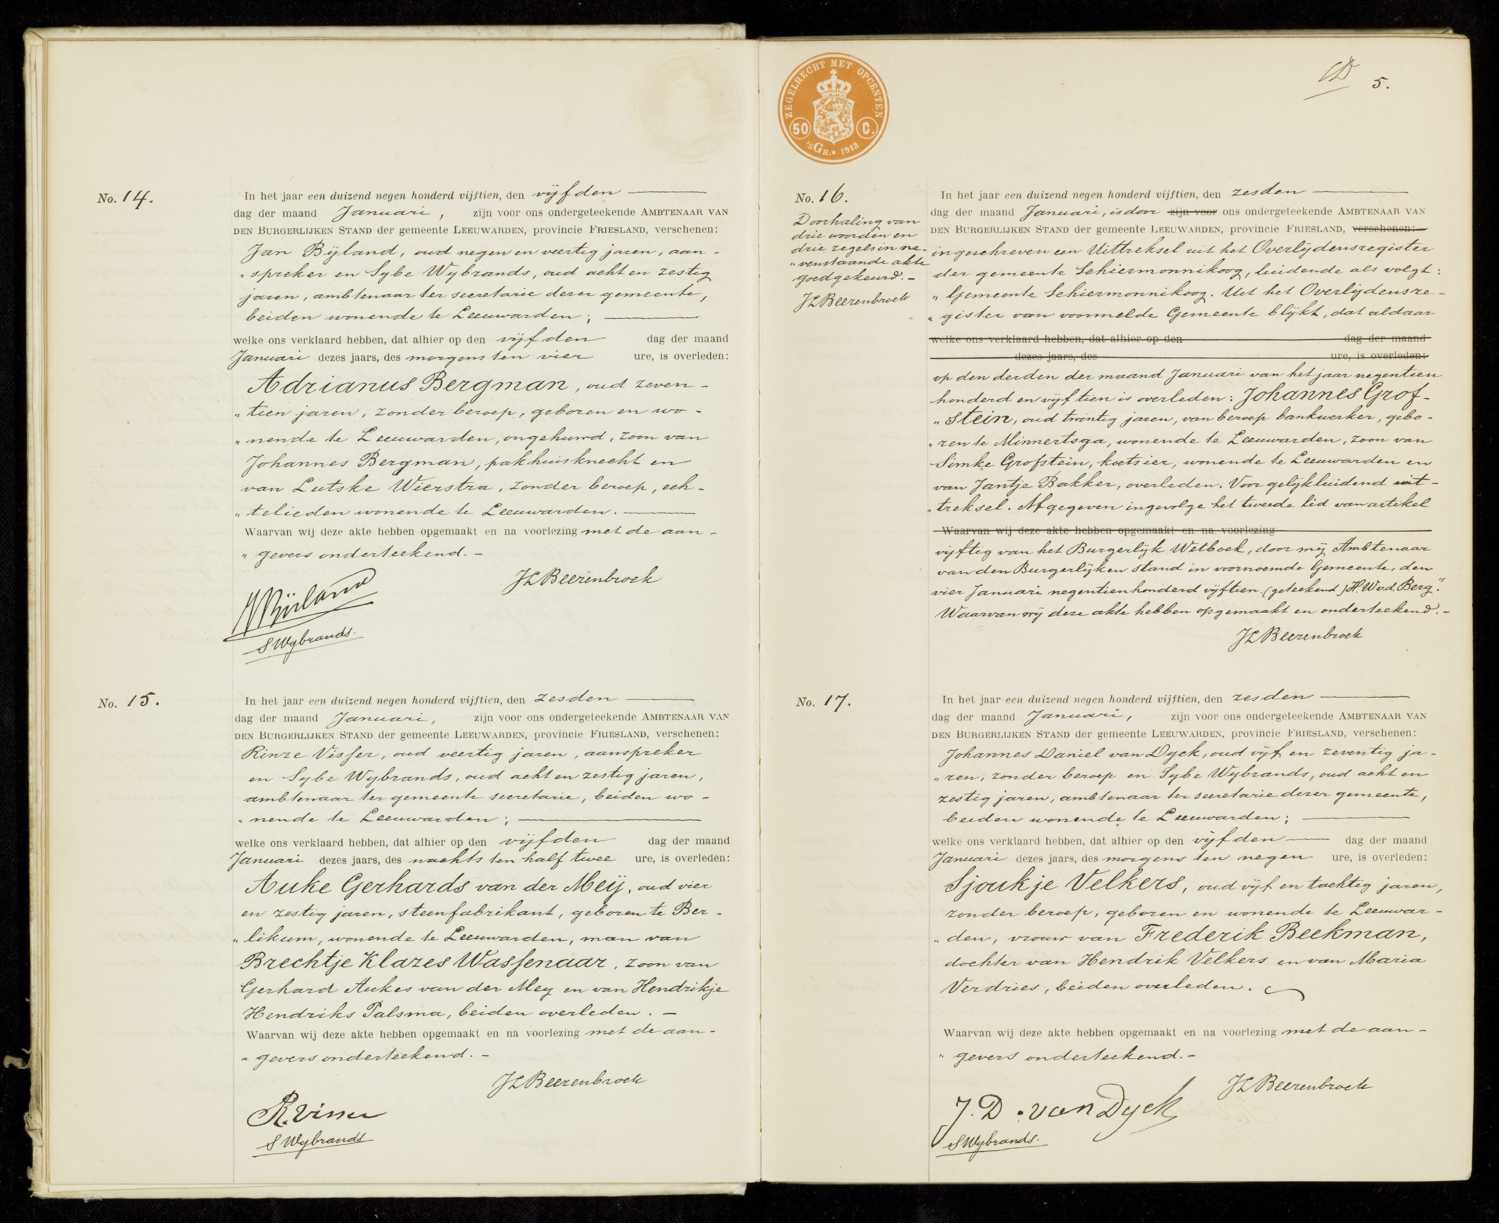 No. 14.
In het jaar een duizend negen honderd vijftien, den vijfden
dag der maand Januari, zijn voor ons ondergeteekende AMBTENAAR VAN
DEN BURGERLIJKEN STAND der gemeente LEEUWARDEN, provincie FRIESLAND, verschenen:
Jan Bijland, oud negen en veertig jaren, aan-
"spreker en Sybe Wybrands, oud acht en zestig
jaren, ambtenaar ter secretarie dezer gemeente,
beiden wonende te Leeuwarden;
welke ons verklaard hebben, dat alhier op den vijfden dag der maand
Januari dezes jaars, des morgens ten vier ure, is overleden:
Adrianus Bergman, oud zeven-
"tien jaren, zonder beroep, geboren en wo-
"nende te Leeuwarden, ongehuwd, zoon van
Johannes Bergman, pakhuisknecht en
van Lutske Wierstra, zonder beroep, ech-
"telieden wonende te Leeuwarden.
Waarvan wij deze akte hebben opgemaakt en na voorlezing met de aan-
"gevers onderteekend.-
JLBeerenbrock
JBijland
S Wybrands.
No. 15.
In het jaar een duizend negen honderd vijftien, den zesden
dag der maand Januari, zijn voor ons ondergeteekende AMBTENAAR VAN
DEN BURGERLIJKEN STAND der gemeente LEEUWARDEN, provincie FRIESLAND, verschenen:
Rinze Visser, oud veertig jaren, aanspreker
en Sybe Wybrands, oud acht en zestig jaren,
ambtenaar ter gemeente secretarie, beiden wo-
"nende te Leeuwarden;
welke ons verklaard hebben, dat alhier op den vijfden dag der maand
Januari dezes jaars, des nachts ten half twee ure, is overleden:
Auke Gerhards van der Meij, oud vier
en zestig jaren, steenfabrikant, geboren te Ber-
"likum, wonende te Leeuwarden, man van
Brechtje Klazes Wassenaar, zoon van
Gerhard Aukes van der Mey en van Hendrikje
Hendriks Palsma, beiden overleden.-
Waarvan wij deze akte hebben opgemaakt en na voorlezing met de aan-
"gevers onderteekend.-
JLBeerenbrock
R. Visser
S Wybrands
ZEGELRECHT MET OPCENTEN
50 C.
GR. 1913
5.
No. 16.
Doorhaling van
drie woorden en
drie regels in ne-
"venstaande akte
goedgekeurd.-
JLBeerenbrock
In het jaar een duizend negen honderd vijftien, den zesden
dag der maand Januari, is door zijn voor ons ondergeteekende AMBTENAAR VAN
DEN BURGERLIJKEN STAND der gemeente LEEUWARDEN, provincie FRIESLAND, verschenen:
ingeschreven een Uittreksel uit het Overlijdensregister
der gemeente Schiermonnikoog, luidende als volgt:
"Gemeente Schiermonnikoog. Uit het Overlijdensre-
"gister van voormelde Gemeente blijkt, dat aldaar
welke ons verklaard hebben, dat alhier op den dag der maand
dezes jaars, des ure, is overleden:
op den derden der maand Januari van het jaar negentien
honderd en vijftien is overleden: Johannes Grof-
"stein, oud twintig jaren, van beroep bankwerker, gebo-
"ren te Minnertsga, wonende te Leeuwarden, zoon van
Simke Grofstein, koetsier, wonende te Leeuwarden en
van Jantje Bakker, overleden. Voor gelijkluidend uit-
"treksel. Afgegeven ingevolge het tweede lid van artikel
Waarvan wij deze akte hebben opgemaakt en na voorlezing
vijftig van het Burgerlijk Wetboek, door mij Ambtenaar
van den Burgerlijken Stand in voornoemde Gemeente, den
vier Januari negentienhonderd vijftien (geteekend) H.W.v.d. Berg."
Waarvan wij deze akte hebben opgemaakt en onderteekend.-
JLBeerenbrock
No. 17.
In het jaar een duizend negen honderd vijftien, den zesden
dag der maand Januari, zijn voor ons ondergeteekende AMBTENAAR VAN
DEN BURGERLIJKEN STAND der gemeente LEEUWARDEN, provincie FRIESLAND, verschenen:
Johannes Daniel van Dyck, oud vijf en zeventig ja-
"ren, zonder beroep en Sybe Wybrands, oud acht en
zestig jaren, ambtenaar ter secretarie dezer gemeente,
beiden wonende te Leeuwarden;
welke ons verklaard hebben, dat alhier op den vijfden dag der maand
Januari dezes jaars, des morgens ten negen ure, is overleden:
Sjoukje Velkers, oud vijf en tachtig jaren,
zonder beroep, geboren en wonende te Leeuwar-
"den, vrouw van Frederik Beekman,
dochter van Hendrik Velkers en van Maria
Verdries, beiden overleden.
Waarvan wij deze akte hebben opgemaakt en na voorlezing met de aan-
"gevers onderteekend.-
JLBeerenbrock
J. D. van Dyck
S Wybrands.